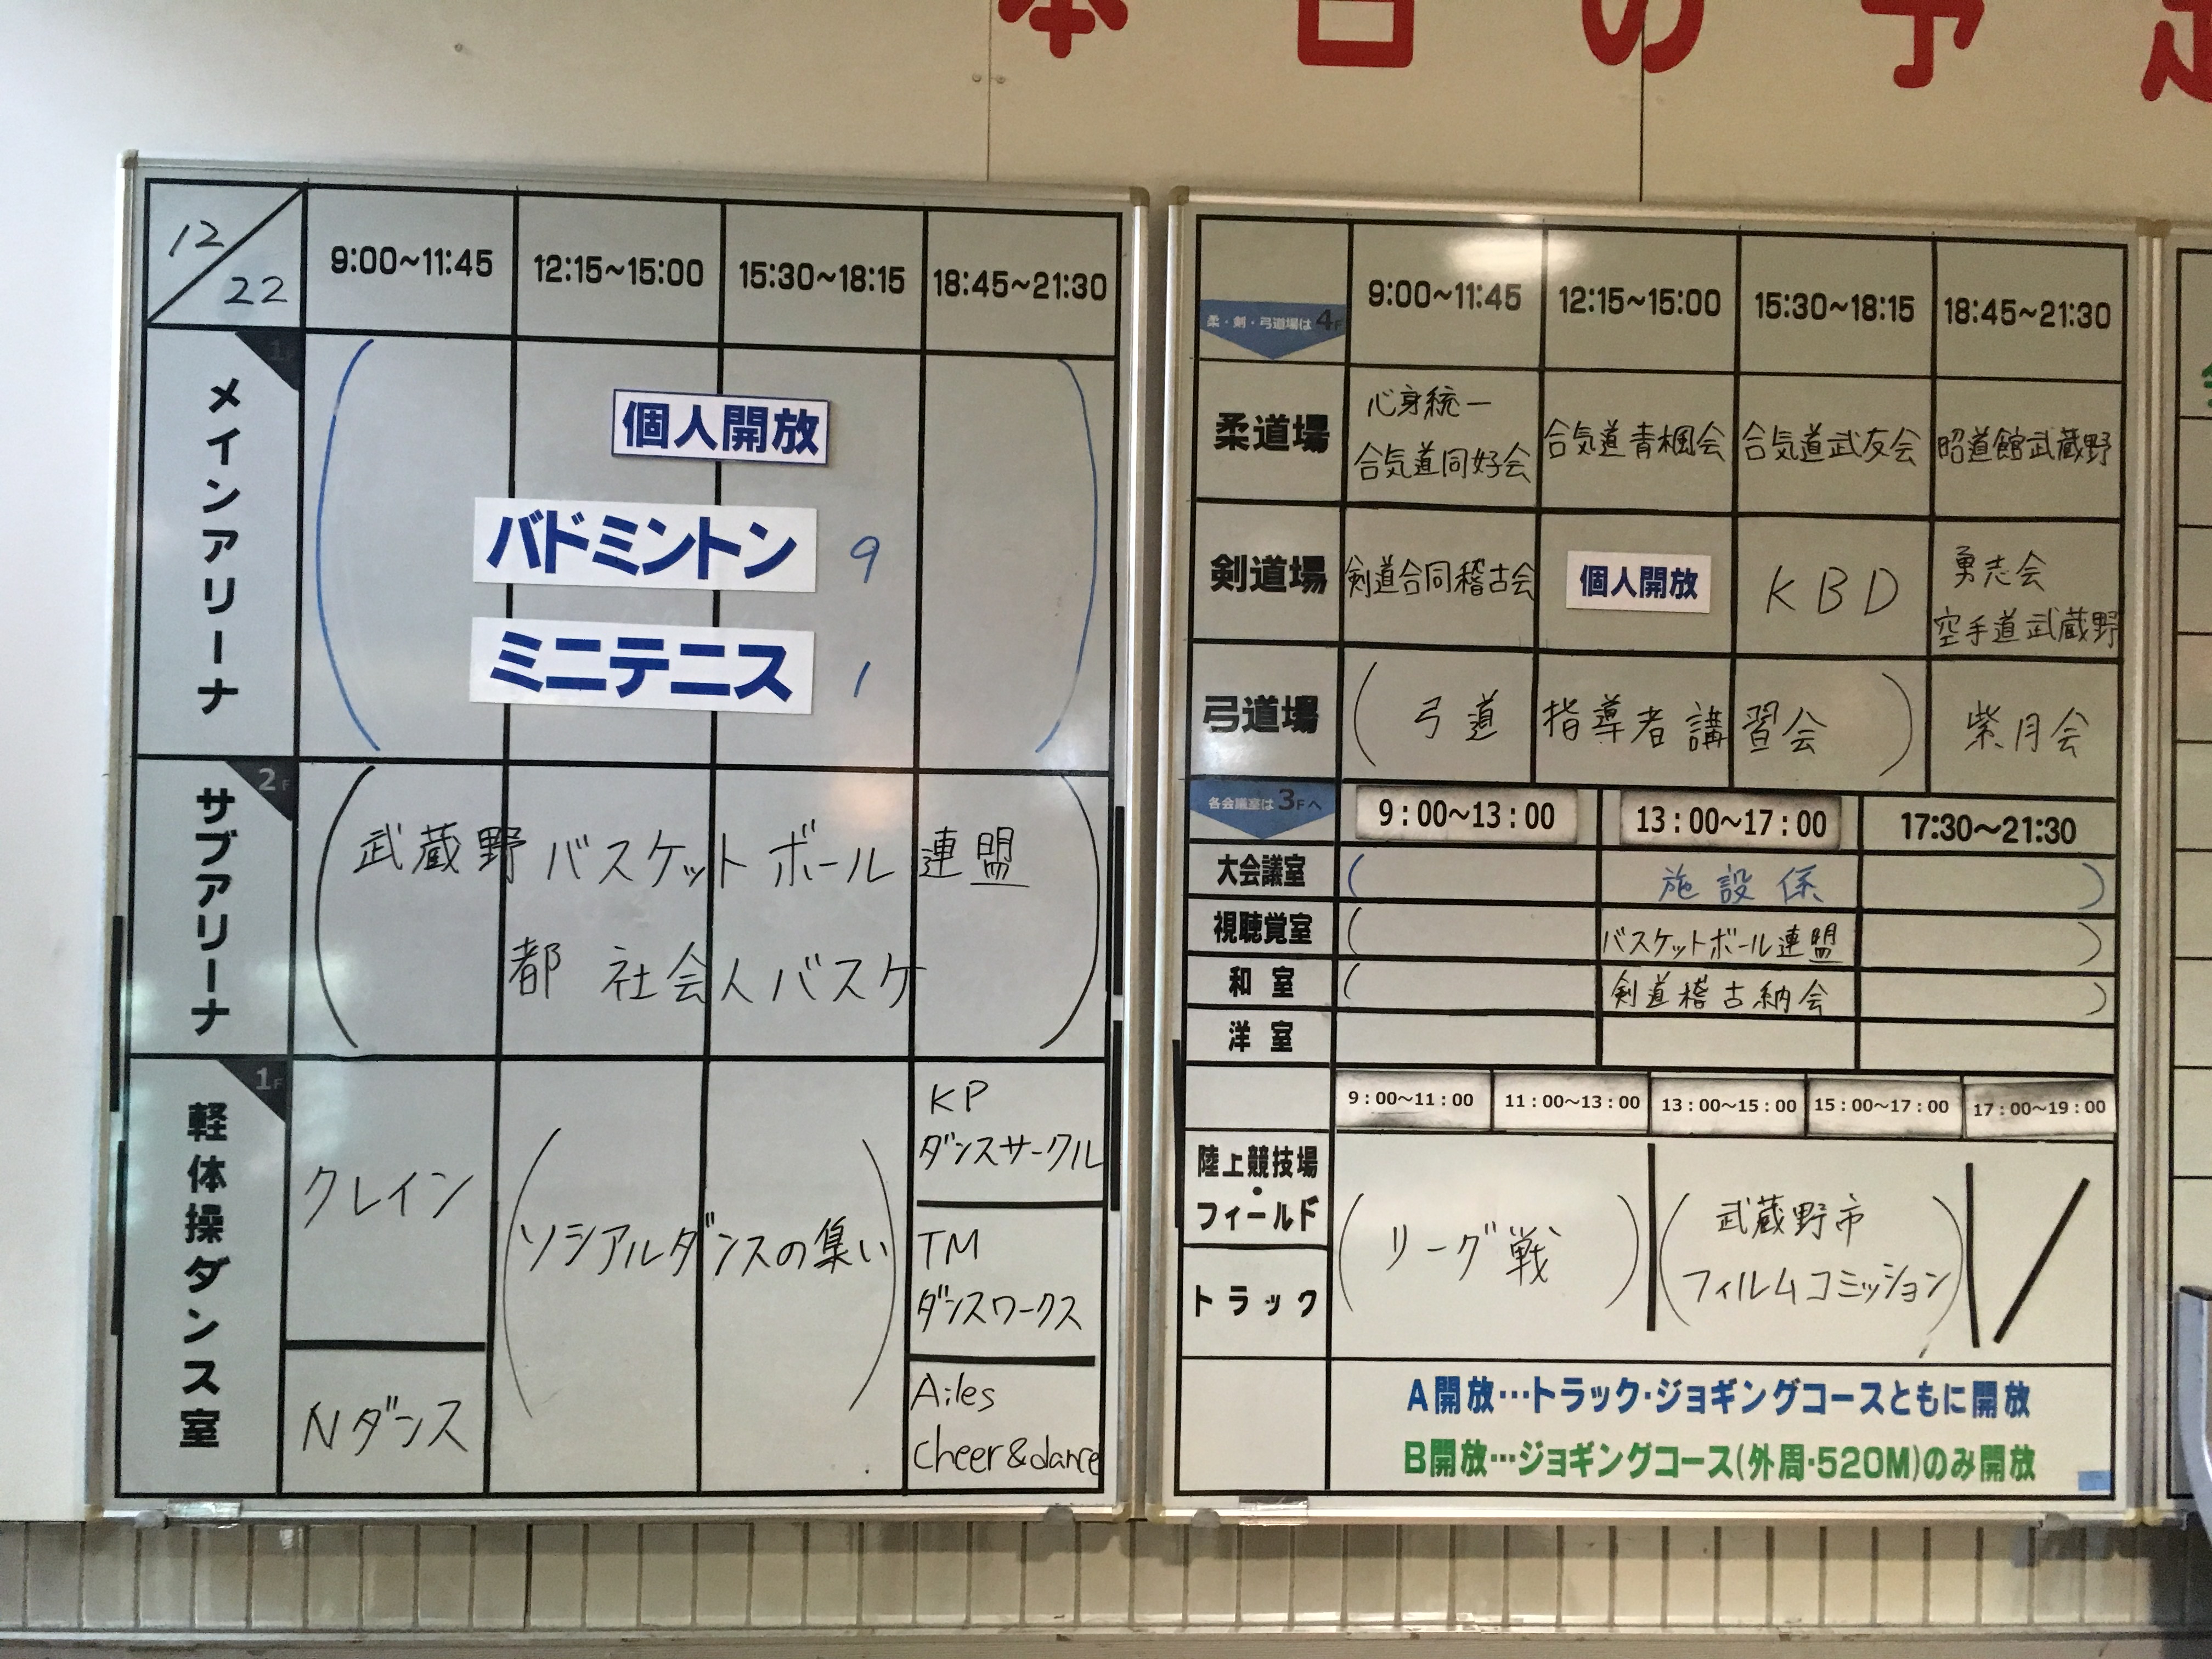 本日の予定
12/22
9:00~11:45
12:15~15:00
15:30~18:15
18:45~21:30
1F
メインアリーナ
個人開放
バドミントン 9
ミニテニス 1
2F
サブアリーナ
武蔵野バスケットボール連盟
都 社会人バスケ
1F
軽体操ダンス室
クレイン
Nダンス
ソシアルダンスの集い
KP
ダンスサークル
TM
ダンスワークス
Ailes
Cheer&dance
柔・剣・弓道場は4F
9:00~11:45
12:15~15:00
15:30~18:15
18:45~21:30
柔道場
心身統一
合気道同好会
合気道青楓会
合気道武友会
昭道館武蔵野
剣道場
剣道合同稽古会
個人開放
KBD
勇志会
空手道武蔵野
弓道場
(弓道指導者講習会)
紫月会
各会議室は3Fへ
9:00~13:00
13:00~17:00
17:30~21:30
大会議室
( 施設係 )
視聴覚室
( バスケットボール連盟 )
和室
( 剣道稽古納会 )
洋室
9:00~11:00
11:00~13:00
13:00~15:00
15:00~17:00
17:00~19:00
陸上競技場
・
フィールド
トラック
(リーグ戦)
武蔵野市
フィルムコミッション
A開放…トラック・ジョギングコースともに開放
B開放…ジョギングコース(外周・520M)のみ開放